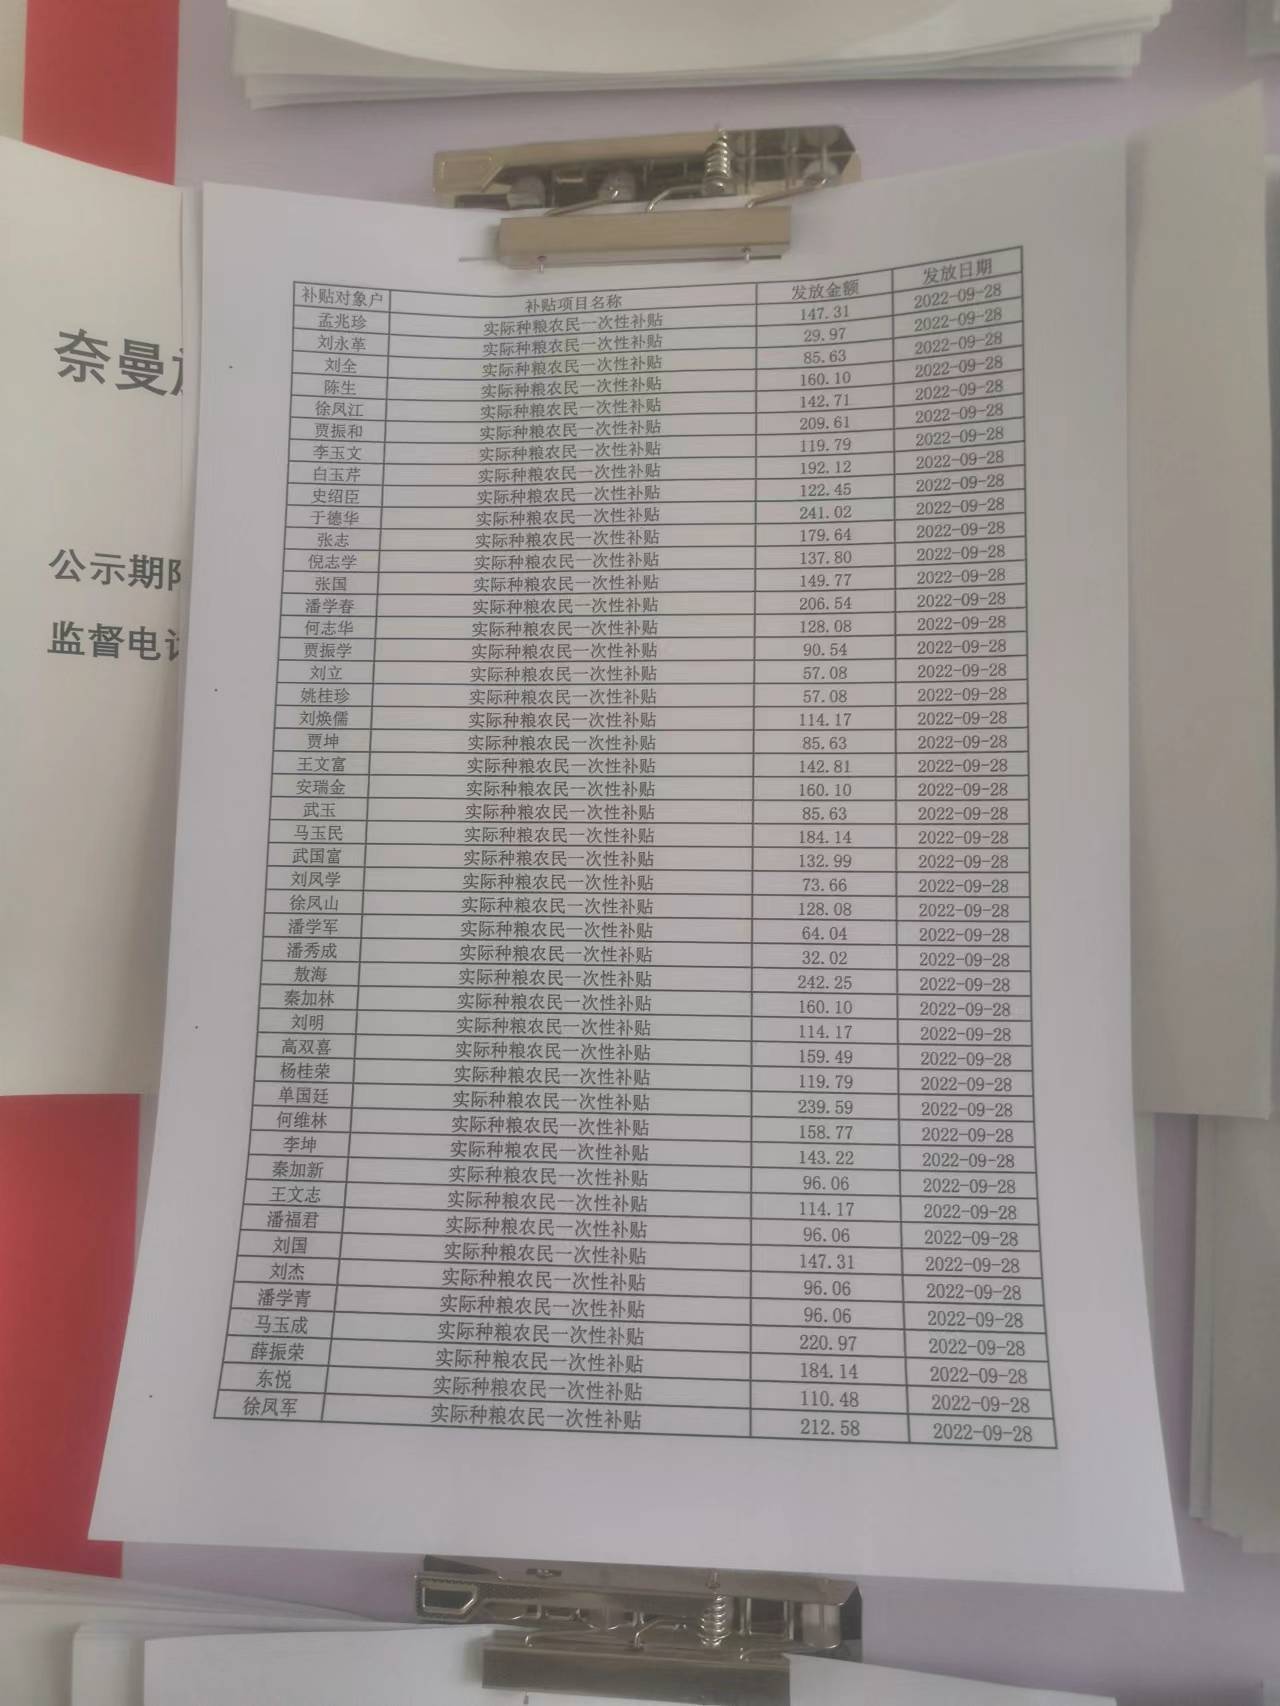 奈曼
公示期
监督电
补贴对象户 补贴项目名称 发放金额 发放日期
孟兆珍 实际种粮农民一次性补贴 147.31 2022-09-28
刘永革 实际种粮农民一次性补贴 29.97 2022-09-28
刘全 实际种粮农民一次性补贴 85.63 2022-09-28
陈生 实际种粮农民一次性补贴 160.10 2022-09-28
徐凤江 实际种粮农民一次性补贴 142.71 2022-09-28
贾振和 实际种粮农民一次性补贴 209.61 2022-09-28
李玉文 实际种粮农民一次性补贴 119.79 2022-09-28
白玉芹 实际种粮农民一次性补贴 192.12 2022-09-28
史绍臣 实际种粮农民一次性补贴 122.45 2022-09-28
于德华 实际种粮农民一次性补贴 241.02 2022-09-28
张志 实际种粮农民一次性补贴 179.64 2022-09-28
倪志学 实际种粮农民一次性补贴 137.80 2022-09-28
张国 实际种粮农民一次性补贴 149.77 2022-09-28
潘学春 实际种粮农民一次性补贴 206.54 2022-09-28
何志华 实际种粮农民一次性补贴 128.08 2022-09-28
贾振学 实际种粮农民一次性补贴 90.54 2022-09-28
刘立 实际种粮农民一次性补贴 57.08 2022-09-28
姚桂珍 实际种粮农民一次性补贴 57.08 2022-09-28
刘焕儒 实际种粮农民一次性补贴 114.17 2022-09-28
贾坤 实际种粮农民一次性补贴 85.63 2022-09-28
王文富 实际种粮农民一次性补贴 142.81 2022-09-28
安瑞金 实际种粮农民一次性补贴 160.10 2022-09-28
武玉 实际种粮农民一次性补贴 85.63 2022-09-28
马玉民 实际种粮农民一次性补贴 184.14 2022-09-28
武国富 实际种粮农民一次性补贴 132.99 2022-09-28
刘凤学 实际种粮农民一次性补贴 73.66 2022-09-28
徐凤山 实际种粮农民一次性补贴 128.08 2022-09-28
潘学军 实际种粮农民一次性补贴 64.04 2022-09-28
潘秀成 实际种粮农民一次性补贴 32.02 2022-09-28
敖海 实际种粮农民一次性补贴 242.25 2022-09-28
秦加林 实际种粮农民一次性补贴 160.10 2022-09-28
刘明 实际种粮农民一次性补贴 114.17 2022-09-28
高双喜 实际种粮农民一次性补贴 159.49 2022-09-28
杨桂荣 实际种粮农民一次性补贴 119.79 2022-09-28
单国廷 实际种粮农民一次性补贴 239.59 2022-09-28
何维林 实际种粮农民一次性补贴 158.77 2022-09-28
李坤 实际种粮农民一次性补贴 143.22 2022-09-28
秦加新 实际种粮农民一次性补贴 96.06 2022-09-28
王文志 实际种粮农民一次性补贴 114.17 2022-09-28
潘福君 实际种粮农民一次性补贴 96.06 2022-09-28
刘国 实际种粮农民一次性补贴 147.31 2022-09-28
刘杰 实际种粮农民一次性补贴 96.06 2022-09-28
潘学青 实际种粮农民一次性补贴 96.06 2022-09-28
马玉成 实际种粮农民一次性补贴 220.97 2022-09-28
薛振荣 实际种粮农民一次性补贴 184.14 2022-09-28
东悦 实际种粮农民一次性补贴 110.48 2022-09-28
徐凤军 实际种粮农民一次性补贴 212.58 2022-09-28